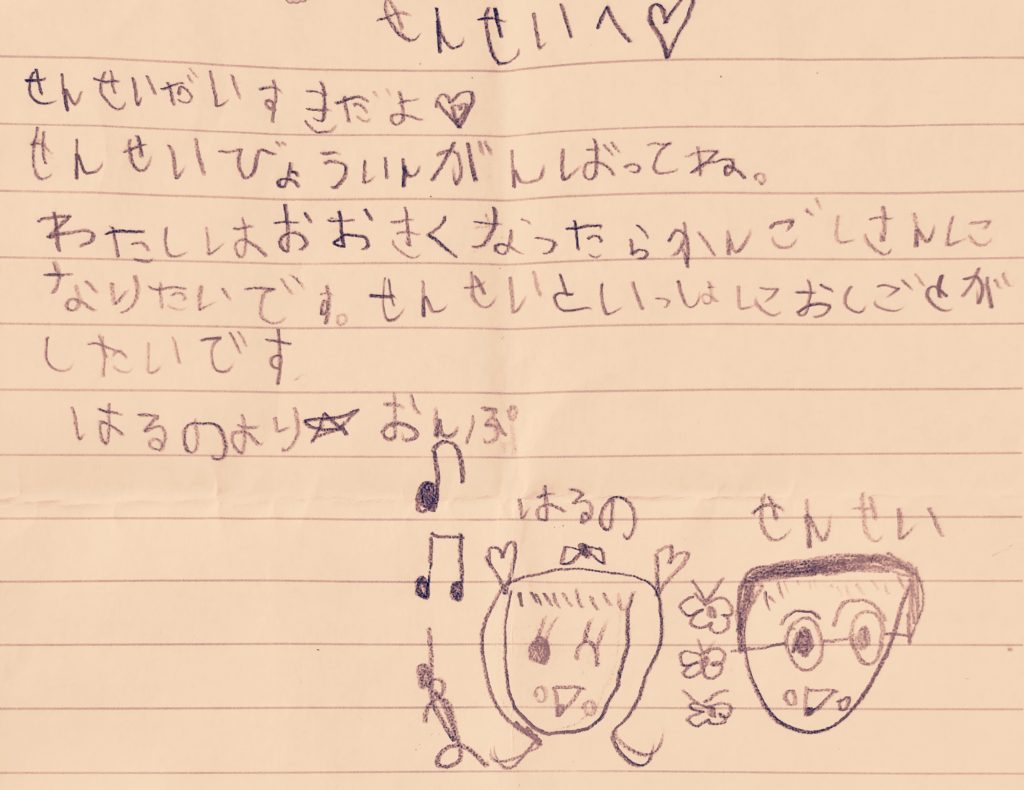 せんせいへ♡
せんせいだいすきだよ♡
せんせいびょういんがんばってね。
わたしはおおきくなったらかんごしさんに
なりたいです。せんせいといっしょにおしごとが
したいです
はるのより☆ おんぷ
はるの せんせい